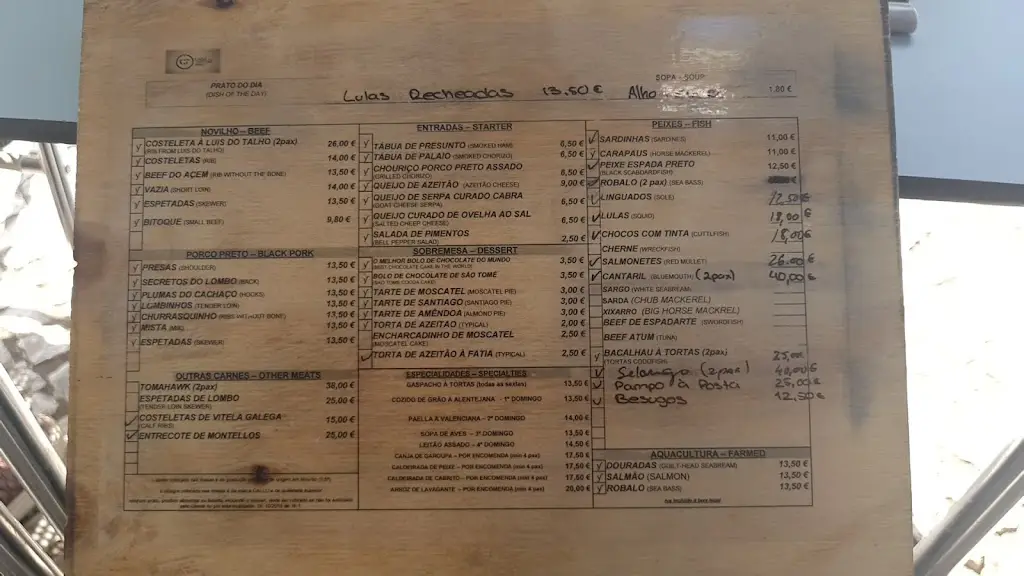 PRATO DO DIA
(DISH OF THE DAY)
Lulas Recheadas 13.50 €
SOPA - SOUP
Alho
1,80 €
NOVILHO – BEEF
COSTELETA À LUIS DO TALHO (2pax) 26,00 €
(RIB FROM LUIS DO TALHO)
COSTELETAS (RIB) 14,00 €
BEEF DO AÇEM (RIB WITHOUT THE BONE) 13,50 €
VAZIA (SHORT LOIN) 14,00 €
ESPETADAS (SKEWER) 13,50 €
BITOQUE (SMALL BEEF) 9,80 €
PORCO PRETO – BLACK PORK
PRESAS (SHOULDER) 13,50 €
SECRETOS DO LOMBO (BACK) 13,50 €
PLUMAS DO CACHAÇO (HOCKS) 13,50 €
LOMBINHOS (TENDER LOIN) 13,50 €
CHURRASQUINHO (RIBS WITHOUT BONE) 13,50 €
MISTA (MIX) 13,50 €
ESPETADAS (SKEWER) 13,50 €
OUTRAS CARNES – OTHER MEATS
TOMAHAWK (2pax) 38,00 €
ESPETADAS DE LOMBO 25,00 €
(TENDER LOIN SKEWER)
COSTELETAS DE VITELA GALEGA 15,00 €
(CALF RIBS)
ENTRECOTE DE MONTELLOS 25,00 €
ENTRADAS – STARTER
TÁBUA DE PRESUNTO (SMOKED HAM) 6,50 €
TÁBUA DE PALAIO (SMOKED CHORIZO) 6,50 €
CHOURIÇO PORCO PRETO ASSADO 6,50 €
(GRILLED CHORIZO)
QUEIJO DE AZEITÃO (AZEITÃO CHEESE) 9,00 €
QUEIJO DE SERPA CURADO CABRA 6,50 €
(GOAT CHEESE SERPA)
QUEIJO CURADO DE OVELHA AO SAL 6,50 €
(SALTED CHEEP CHEESE)
SALADA DE PIMENTOS 2,50 €
(BELL PEPPER SALAD)
SOBREMESA – DESSERT
O MELHOR BOLO DE CHOCOLATE DO MUNDO 3,50 €
(BEST CHOCOLATE CAKE IN THE WORLD)
BOLO DE CHOCOLATE DE SÃO TOMÉ 3,50 €
(SÃO TOMÉ COCOA CAKE)
TARTE DE MOSCATEL (MOSCATEL PIE) 3,00 €
TARTE DE SANTIAGO (SANTIAGO PIE) 3,00 €
TARTE DE AMÊNDOA (ALMOND PIE) 3,00 €
TORTA DE AZEITAO (TYPICAL) 2,00 €
ENCHARCADINHO DE MOSCATEL 2,50 €
(MOSCATEL CAKE)
TORTA DE AZEITÃO À FATIA (TYPICAL) 2,50 €
ESPECIALIDADES – SPECIALTIES
GASPACHO À TORTAS (todas as sextas) 13,50 €
COZIDO DE GRÃO A ALENTEJANA - 1º DOMINGO 13,50 €
PAELLA À VALENCIANA – 2º DOMINGO 14,00 €
SOPA DE AVES – 3º DOMINGO 13,50 €
LEITÃO ASSADO – 4º DOMINGO 14,50 €
CANJA DE GAROUPA – POR ENCOMENDA (min 4 pax) 17,50 €
CALDEIRADA DE PEIXE – POR ENCOMENDA (min 4 pax) 17,50 €
CALDEIRADA DE CABRITO – POR ENCOMENDA (min 4 pax) 17,50 €
ARROZ DE LAVAGANTE – POR ENCOMENDA (min 4 pax) 20,00 €
PEIXES – FISH
SARDINHAS (SARDINES) 11,00 €
CARAPAUS (HORSE MACKEREL) 11,00 €
PEIXE ESPADA PRETO 12,50 €
(BLACK SCABARDFISH)
ROBALO (2 pax) (SEA BASS) €
LINGUADOS (SOLE) 17,50 €
LULAS (SQUID) 18,00 €
CHOCOS COM TINTA (CUTTLFISH) 18,00 €
CHERNE (WRECKFISH)
SALMONETES (RED MULLET) 26.00 €
CANTARIL (BLUEMOUTH) (2pax) 40,00 €
SARGO (WHITE SEABREAM)
SARDA (CHUB MACKEREL)
XIXARRO (BIG HORSE MACKREL)
BEEF DE ESPADARTE (SWORDFISH)
BEEF ATUM (TUNA)
BACALHAU À TORTAS (2pax) 25,00
(TORTAS CODFISH)
Selongo (2pax) 40,00 €
Pampo à Posta 25,00 €
Besugos 12,50 €
AQUACULTURA – FARMED
DOURADAS (GUILT-HEAD SEABREAM) 13,50 €
SALMÃO (SALMON) 13,50 €
ROBALO (SEA BASS) 13,50 €